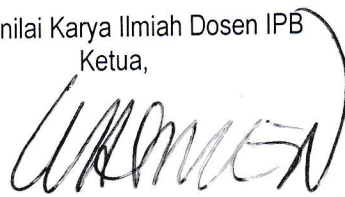 nilai Karya Ilmiah Dosen IPB
Ketua,